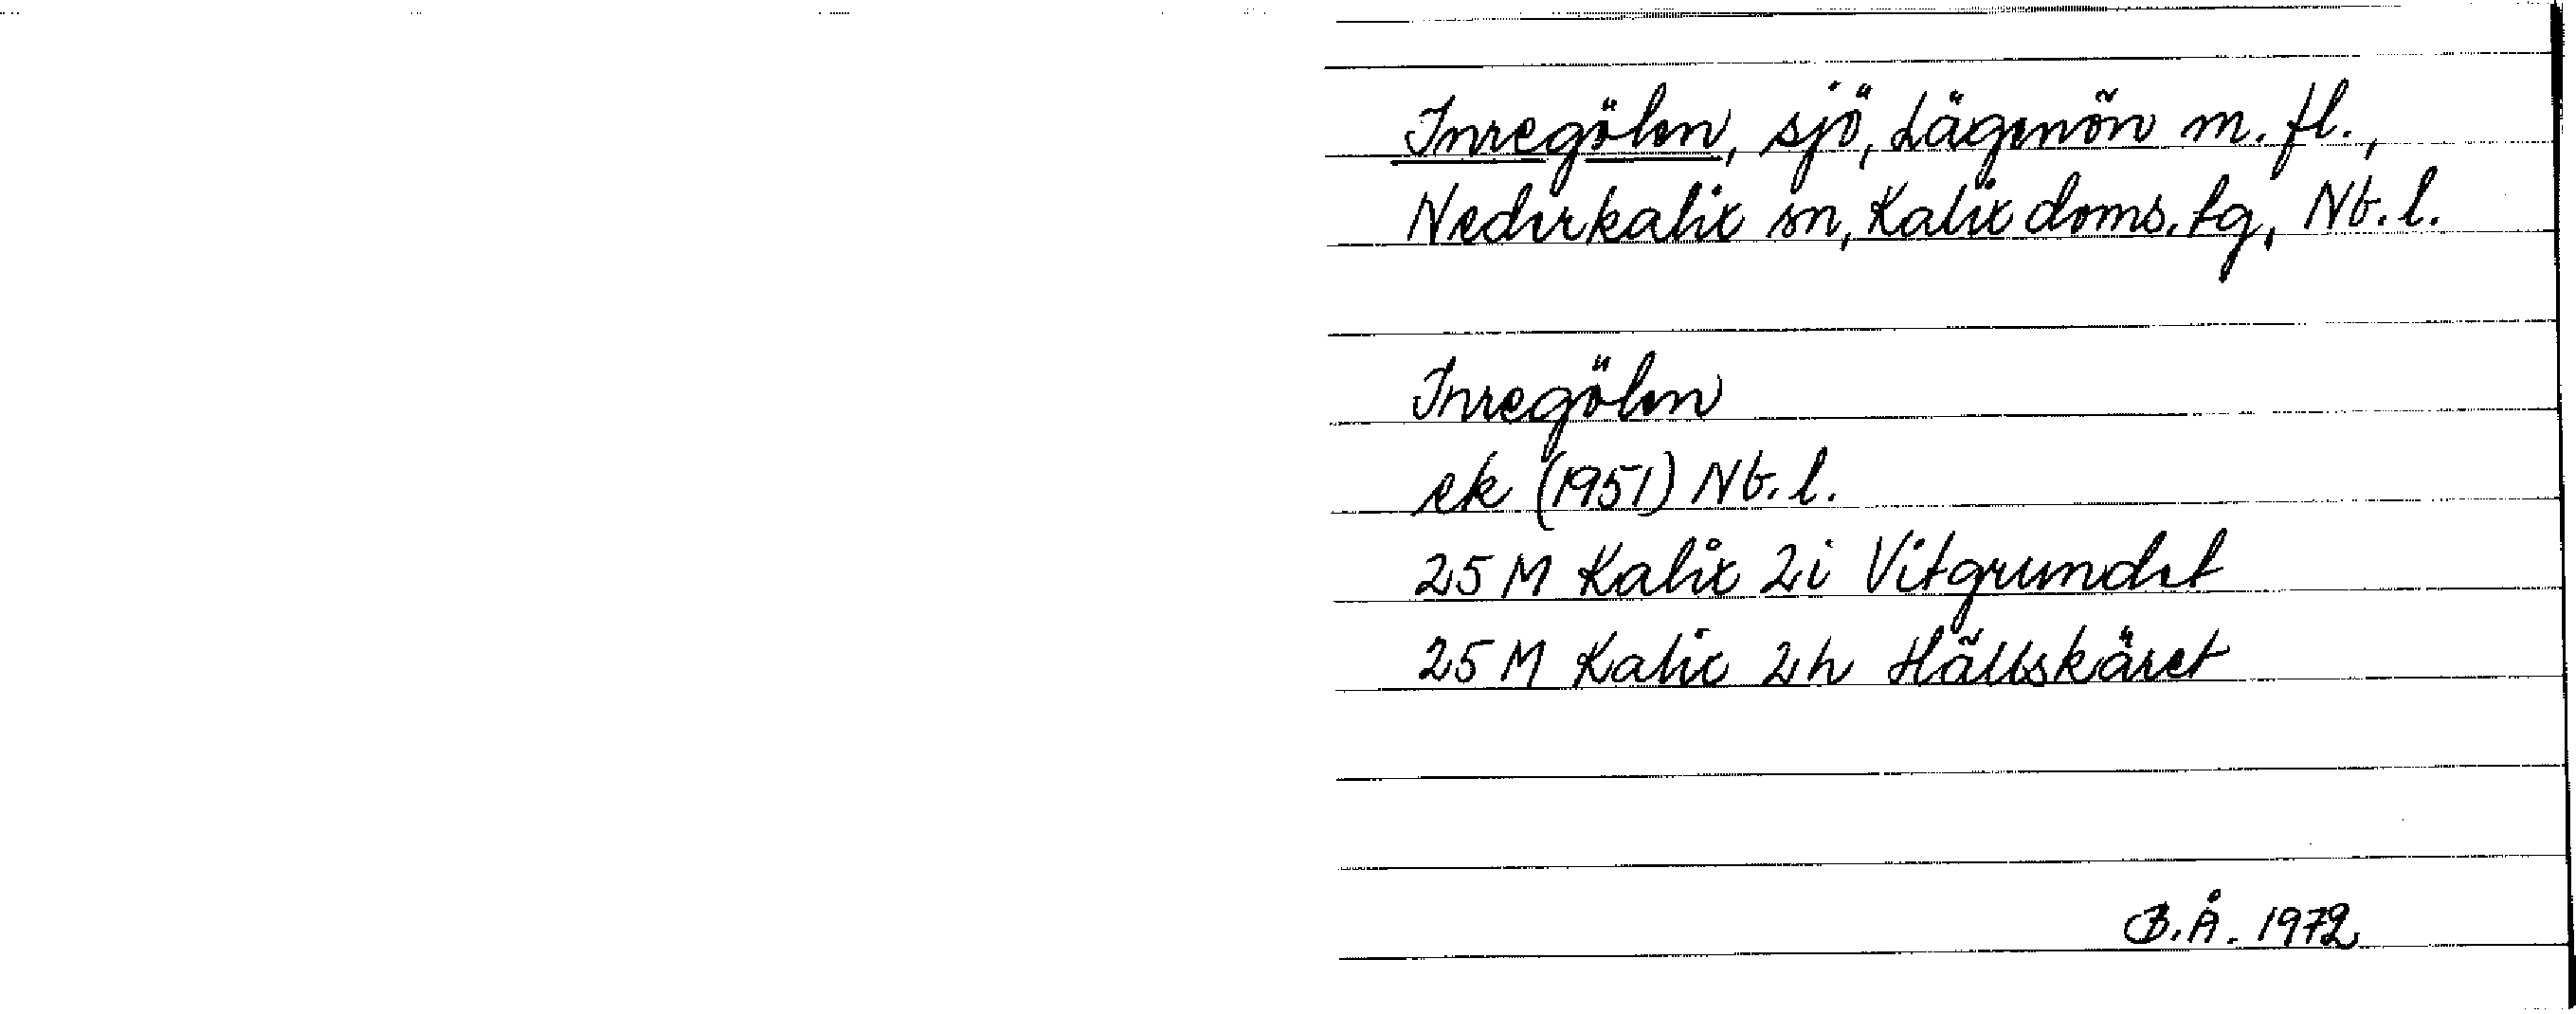 Inregölen, sjö, Lägenön m. fl.,
Nederkalix sn, Kalix doms. tg, Nb. l.
Inregölen
ek (1951) Nb. l.
25 M Kalix 2i Vitgrundet
25 M Kalix 2h Hällskäret
B.Å. 1972